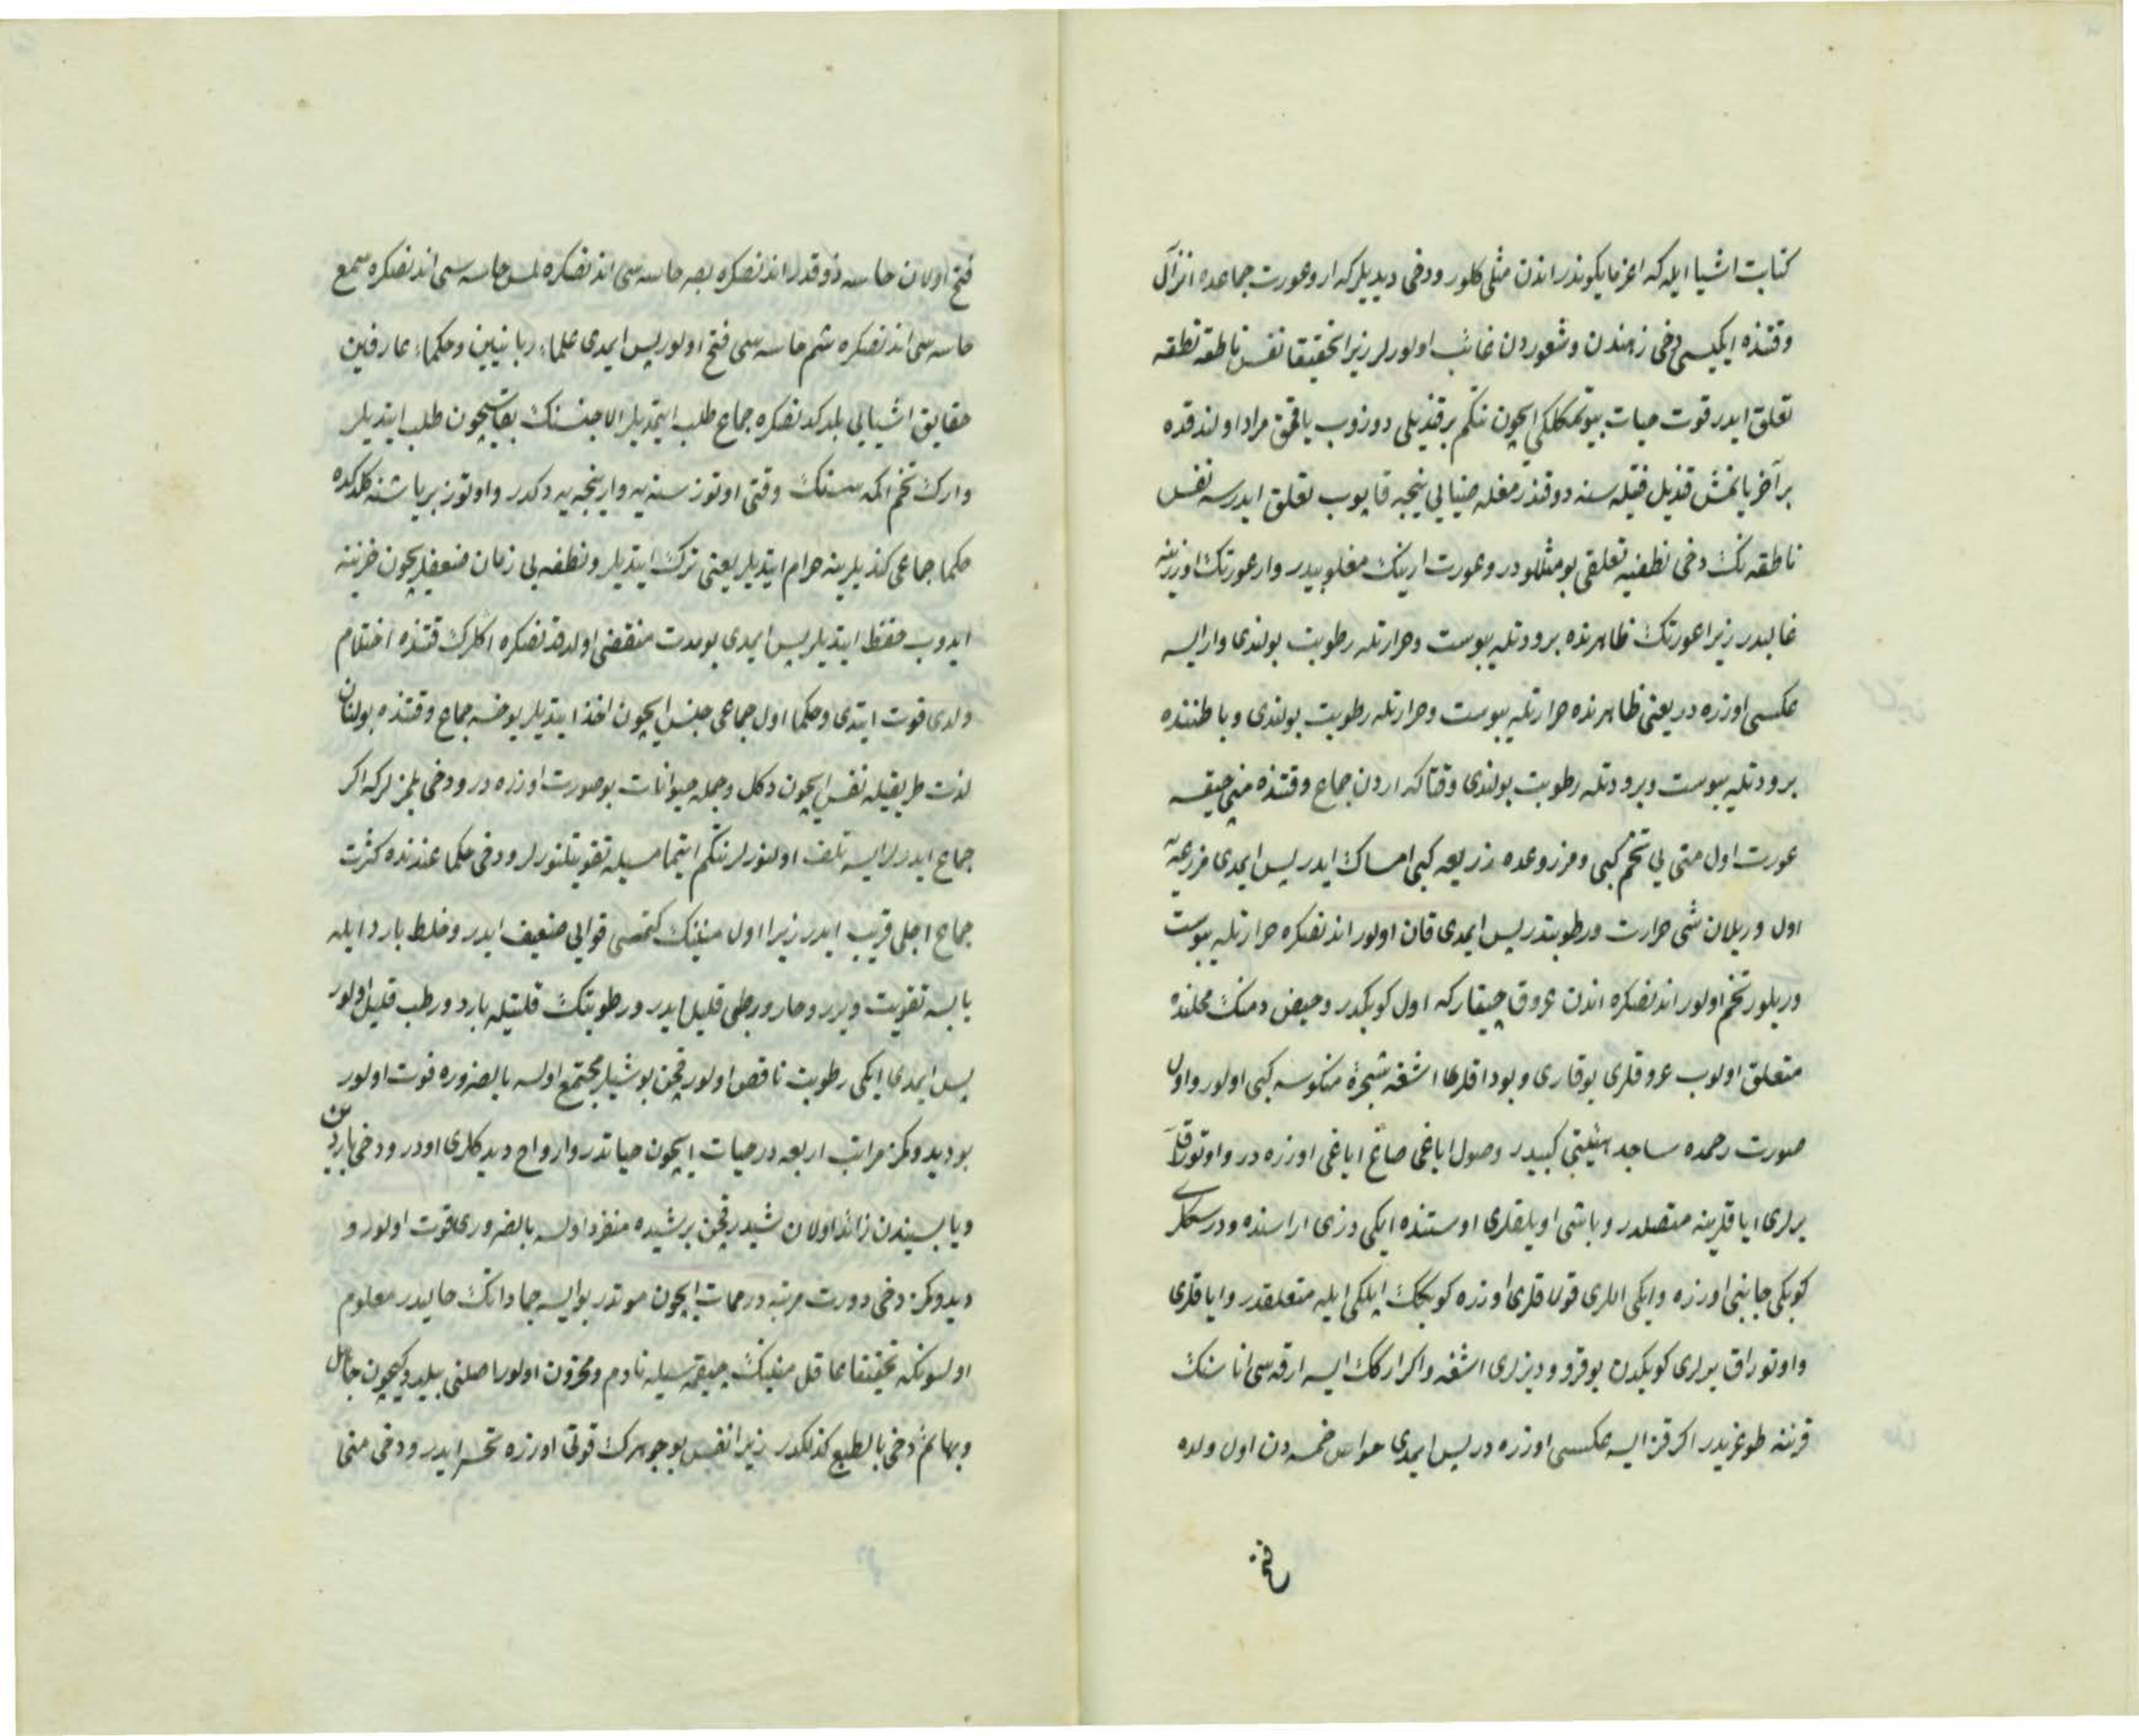 كتابت اشيا ايله كه اعز مايكوندر اندن مثلى كلور ودخى ديديلر كه ار وعورت جماعده انزال
وقتنده ايكيسى دخى ذهندن وشعوردن غائب اولورلر زيرا تحقيقا نفس ناطقه نطفه
تعلق ايدر قوت حيات بيوتمكلكى ايچون نتكم بر قنديلى دوزوب ياقمق مراد اولندقده
بر آخر يانمش قنديل فتيله سنه دوقندرمغله ضيايى نيجه قاپوب تعلق ايدرسه نفس
ناطقه نك دخى نطفيه تعلقى بو مثللودر وعورت ارينك مغلوبيدر وار عورتك اوزرينه
غالبدر زيرا عورتك ظاهرنده برودتله يبوست وحرارتله رطوبت بولندى وار ايسه
عكسى اوزره در يعنى ظاهرنده حرارتله يبوست وحرارتله رطوبت بولندى وباطننده
برودتله يبوست وبرودتله رطوبت بولندى وقتاكه اردن جماع وقتنده منى چيقسه
عورت اول منى يى تخم كبى ومزروعده زريعه كبى امساك ايدر پس ايمدى مزرعيه
اول ويريلان شى حرارت ورطوبتدر پس ايمدى قان اولور اندنصكره حرارتله يبوست
ويريلور تخم اولور اندنصكره اندن عروق چيقار كه اول كوبكدر وحيض دمنك محلنده
متعلق اولوب عروقلرى يوقارى وبوداقلرى اشغه شجرۀ منكوسه كبى اولور واول
صورت رحمده ساجد هيئتى كبيدر وصول اياغى صاغ اياغى اوزره در واوتوراق
يرلرى اياقلرينه متصلدر وباشى اويلقلرى اوستنده ايكى دزى اراسنده ودرسكلرى
كوبكى جانبى اوزره وايكى اللرى قولاقلرى اوزره كوبكك ايپلكى ايله متعلقدر واياقلرى
واوتوراق يرلرى كوبكدن يوقرو وديزلرى اشغه واكر اركك ايسه ارقه سى اناسنك
قرننه طوغريدر اكر قز ايسه عكسى اوزره در پس ايمدى حواس خمسه دن اول ولده
فتح
فتح اولان حاسه ذوقدر اندنصكره بصر حاسه سى اندنصكره لمس حاسه سى اندنصكره سمع
حاسه سى اندنصكره شم حاسه سى فتح اولور پس ايمدى علماء ربانيين وحكماء عارفين
حقايق اشيايى بلدكدنصكره جماع طلب ايتمديلر الا جنسنك بقاسيچون طلب ايتديلر
وارك تخم اكمه سنك وقتى اوتوز سنه يه وارنجه يه دكدر واوتوز بر ياشنه كلدكده
حكما جماعى كنديلرينه حرام ايتديلر يعنى ترك ايتديلر ونطفه يى زمان ضعفلريچون خزينه
ايدوب حفظ ايتديلر پس ايمدى بو مدت منقضى اولدقدنصكره اكلرك قتنده اختلام
ولدى قوت ايتدى وحكما اول جماعى جنس ايچون اخذ ايتديلر يوخسه جماع وقتنده بولنان
لذت طريقيله نفس ايچون دكل وجمله حيوانات بو صورت اوزره در ودخى بلمزلر كه اكر
جماع ايدرلر ايسه تلف اولنورلر نتكم ايتمامسيله تقويتلنورلر ودخى حكما عندنده كثرت
جماع اجلى قريب ايدر زيرا اول منينك كتمسى قوايى ضعيف ايدر وخلط بارد ايله
يابسه تقويت ويرر وحار ورطبى قليل ايدر ورطوبتك قلتيله بارد ورطب قليل اولور
پس ايمدى ايكى رطوبت ناقص اولور قچن بو شيلر مجتمع اولسه بالضروره فوت اولور
بو ديدوكمز مراتب اربعه در حيات ايچون حياتدر وارواح ديدكلرى اودر ودخى باردن
ويابسيندن زائد اولان شيدر قچن بر شيده منفرد اولسه بالضرورى فوت اولور و
ديدوكمز دخى دورت مرتبه در ممات ايچون موتدر بو ايسه جماداتك حاليدر معلوم
اولسونكه تحقيقا عاقل منينك چيقمه سيله نادم ومحزون اولور اصلنى بيلديكيچون جاهل
وبهائم دخى بالطبع كذلكدر زيرا نفس بو جوهرك قوتى اوزره تحسر ايدر ودخى منى